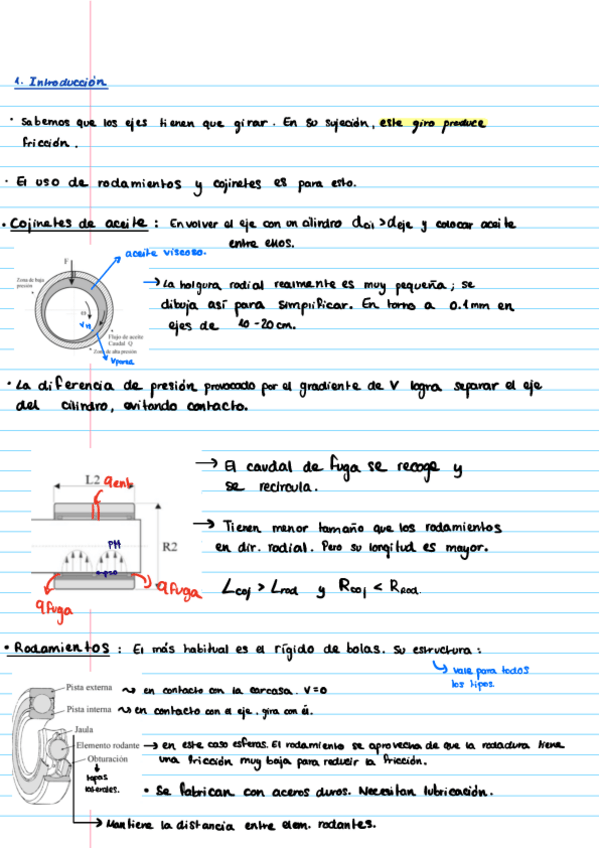 1. Introducción
· Sabemos que los ejes tienen que girar. En su sujeción, este giro produce
fricción.
· El uso de rodamientos y cojinetes es para esto.
· Cojinetes de aceite: Envolver al eje con un cilindro dci > deje y colocar aceite
entre ellos.
aceite viscoso.
F
Zona de baja
presión
ω
Flujo de aceite
Caudal Q
Zona de alta presión
Vpared
→ La holgura radial realmente es muy pequeña; se
dibuja así para simplificar. En torno a 0.1mm en
ejes de 10-20cm.
· La diferencia de presión provocado por el gradiente de V logra separar el eje
del cilindro, evitando contacto.
L2
qent
PH
R2
qfuga
qfuga
→ El caudal de fuga se recoge y
se recircula.
→ Tienen menor tamaño que los rodamientos
en dir. radial. Pero su longitud es mayor.
Lcoj > Lrod y Rcoj < Rrod.
· Rodamientos: El más habitual es el rígido de bolas. Su estructura:
↳ vale para todos
los tipos
Pista externa ↝ en contacto con la carcasa. V=0
Pista interna ↝ en contacto con el eje, gira con él.
Jaula
Elemento rodante → en este caso esferas. El rodamiento se aprovecha de que la rodadura tiene
una fricción muy baja para reducir la fricción.
Obturación
tapas
laterales.
· Se fabrican con aceros duros. Necesitan lubricación.
→ Mantiene la distancia entre elem. rodantes.